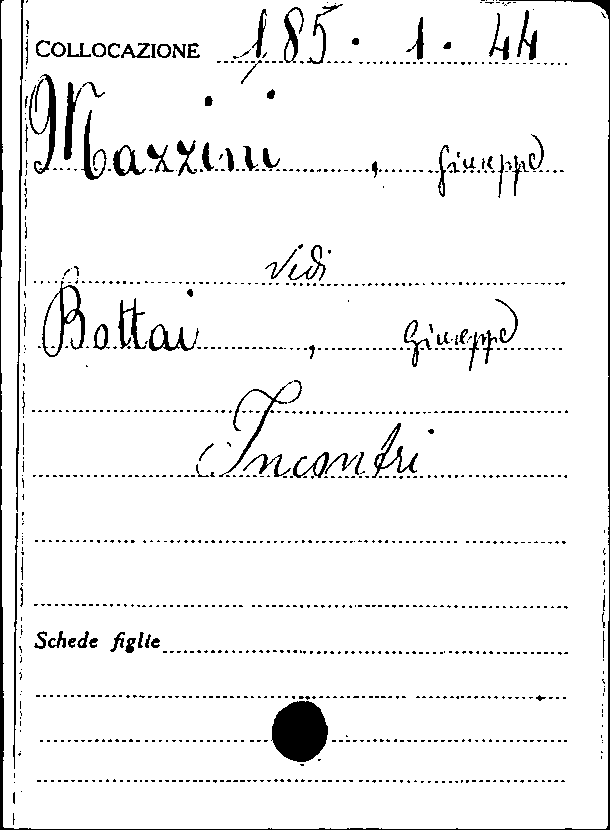 COLLOCAZIONE 185. 1. 44
Mazzini, Giuseppe
Vedi
Bottai, Giuseppe
Incontri
Schede figlie